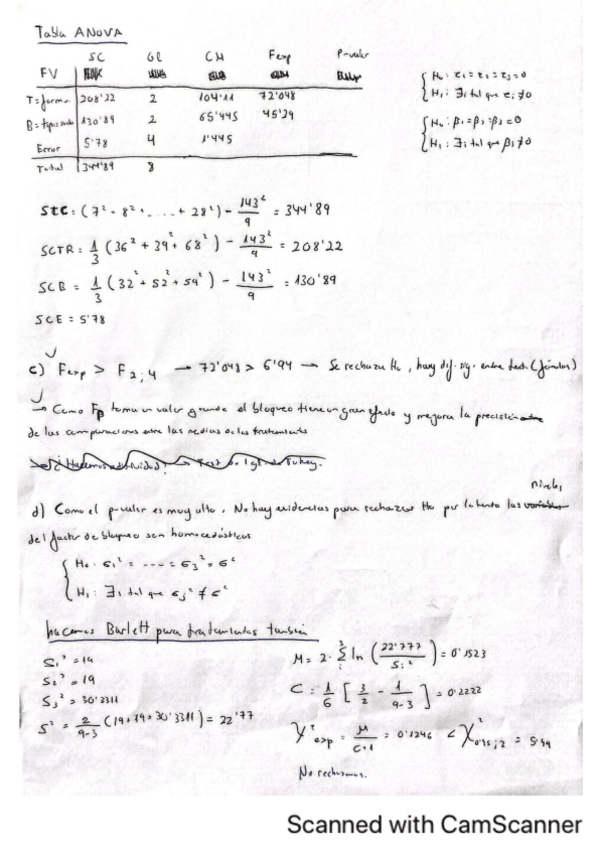 Tabla ANOVA
SC GL CM Fexp P-valor
FV
T=formu 208'22 2 104'11 72'048
B=tipos 130'89 2 65'445 45'29
Error 5'78 4 1'445
Total 344'89 8
{ H₀: τ₁=τ₂=τ₃=0
H₁: ∃i tal que τi≠0
{ H₀: β₁=β₂=β₃=0
H₁: ∃j tal que βj≠0
STC = (7² + 8² + .... + 28²) - 143²/9 = 344'89
SCTR = 1/3 (36² + 39² + 68²) - 143²/9 = 208'22
SCB = 1/3 (32² + 52² + 59²) - 143²/9 = 130'89
SCE = 5'78
c) Fexp > F2;4 → 72'048 > 6'94 → Se rechaza H₀, hay dif. sig. entre trat. (fórmulas)
→ Como Fβ toma un valor grande el bloqueo tiene un gran efecto y mejora la precisión
de las comparaciones entre las medias de los tratamientos
niveles
d) Como el p-valor es muy alto. No hay evidencias para rechazar H₀ por lo tanto los
del factor de bloqueo son homocedásticos
{ H₀: σ₁² = ---- = σ₃² = σ²
H₁: ∃j tal que σj² ≠ σ²
hacemos Barlett para tratamientos también
S₁² = 19
S₂² = 19
S₃² = 30'3311
S² = 2/9-3 (19+19+30'3311) = 22'77
M = 2· Σ ln (22'777/Si²) = 0'1523
C = 1/6 [3/2 - 1/9-3] = 0'2222
χ²exp = M/C+1 = 0'1246 < χ²0'95;2 = 5'99
No rechazamos.
Scanned with CamScanner